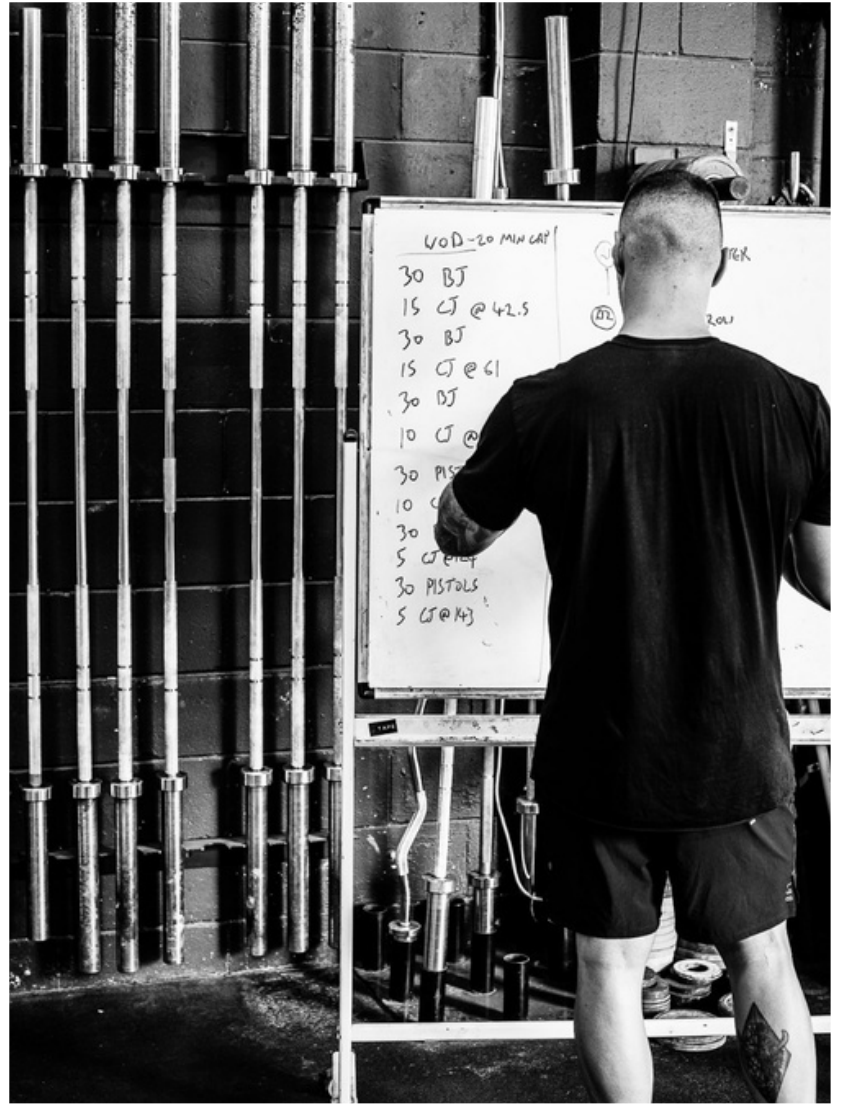 WOD-20 MIN CAP
30 BJ
15 CJ @ 42.5
30 BJ
15 CJ @ 61
30 BJ
10 CJ @
30
10
30
5 CJ @
30 PISTOLS
5 CJ @ 143
TAPE